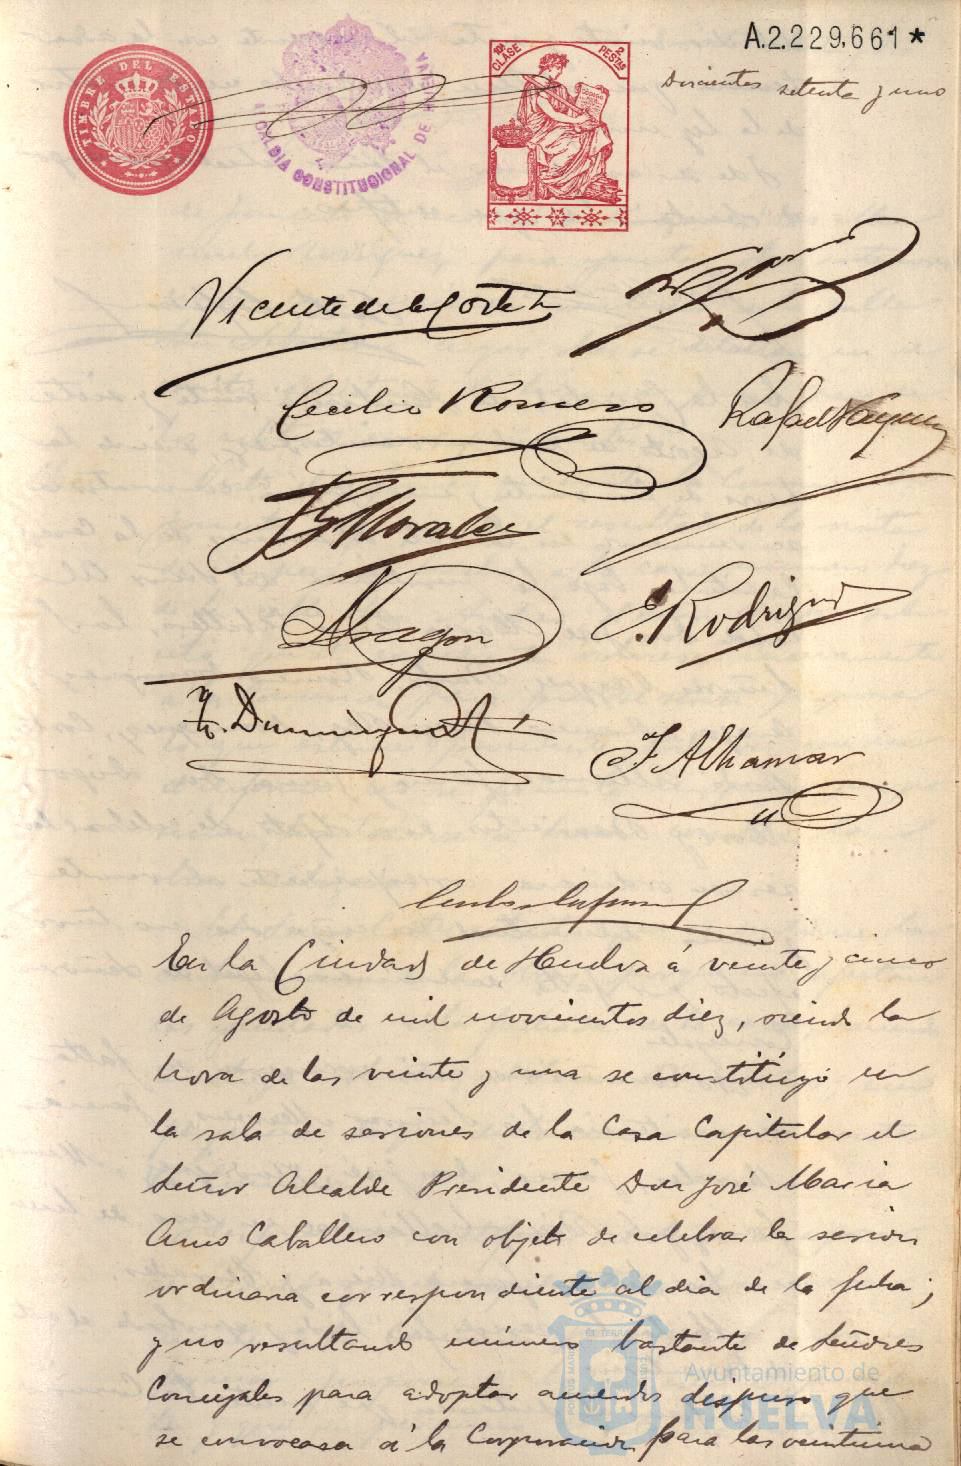 A.2.229,661*
TIMBRE DEL ESTADO
ALCALDIA CONSTITUCIONAL DE HUELVA
10ª CLASE 2 PESTAS
Doscientos setenta y uno
Vicente de la Corte
Cecilio Romero
Rafael Vazquez
Morales
Aragon
E. Rodriguez
Dominguez
J. Alhamar
En la Ciudad de Huelva á veinte y cinco
de Agosto de mil novecientos diez, siendo la
hora de las veinte y una se constituyó en
la sala de sesiones de la Casa Capitular el
Señor Alcalde Presidente Don José Maria
Amo Caballero con objeto de celebrar la sesion
ordinaria correspondiente al dia de la fecha;
y no resultando número bastante de Señores
Concejales para adoptar acuerdos dispuso que
se convocase á la Corporacion para las veintiuna
Ayuntamiento de
HUELVA